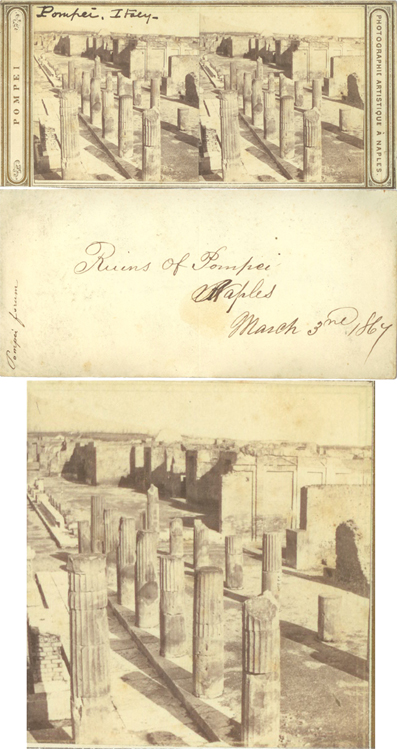 POMPEI
Pompei. Italy-
PHOTOGRAPHIE
ARTISTIQUE À NAPLES
Ruins of Pompei
Naples
March 3rd. 1867
Pompei forum